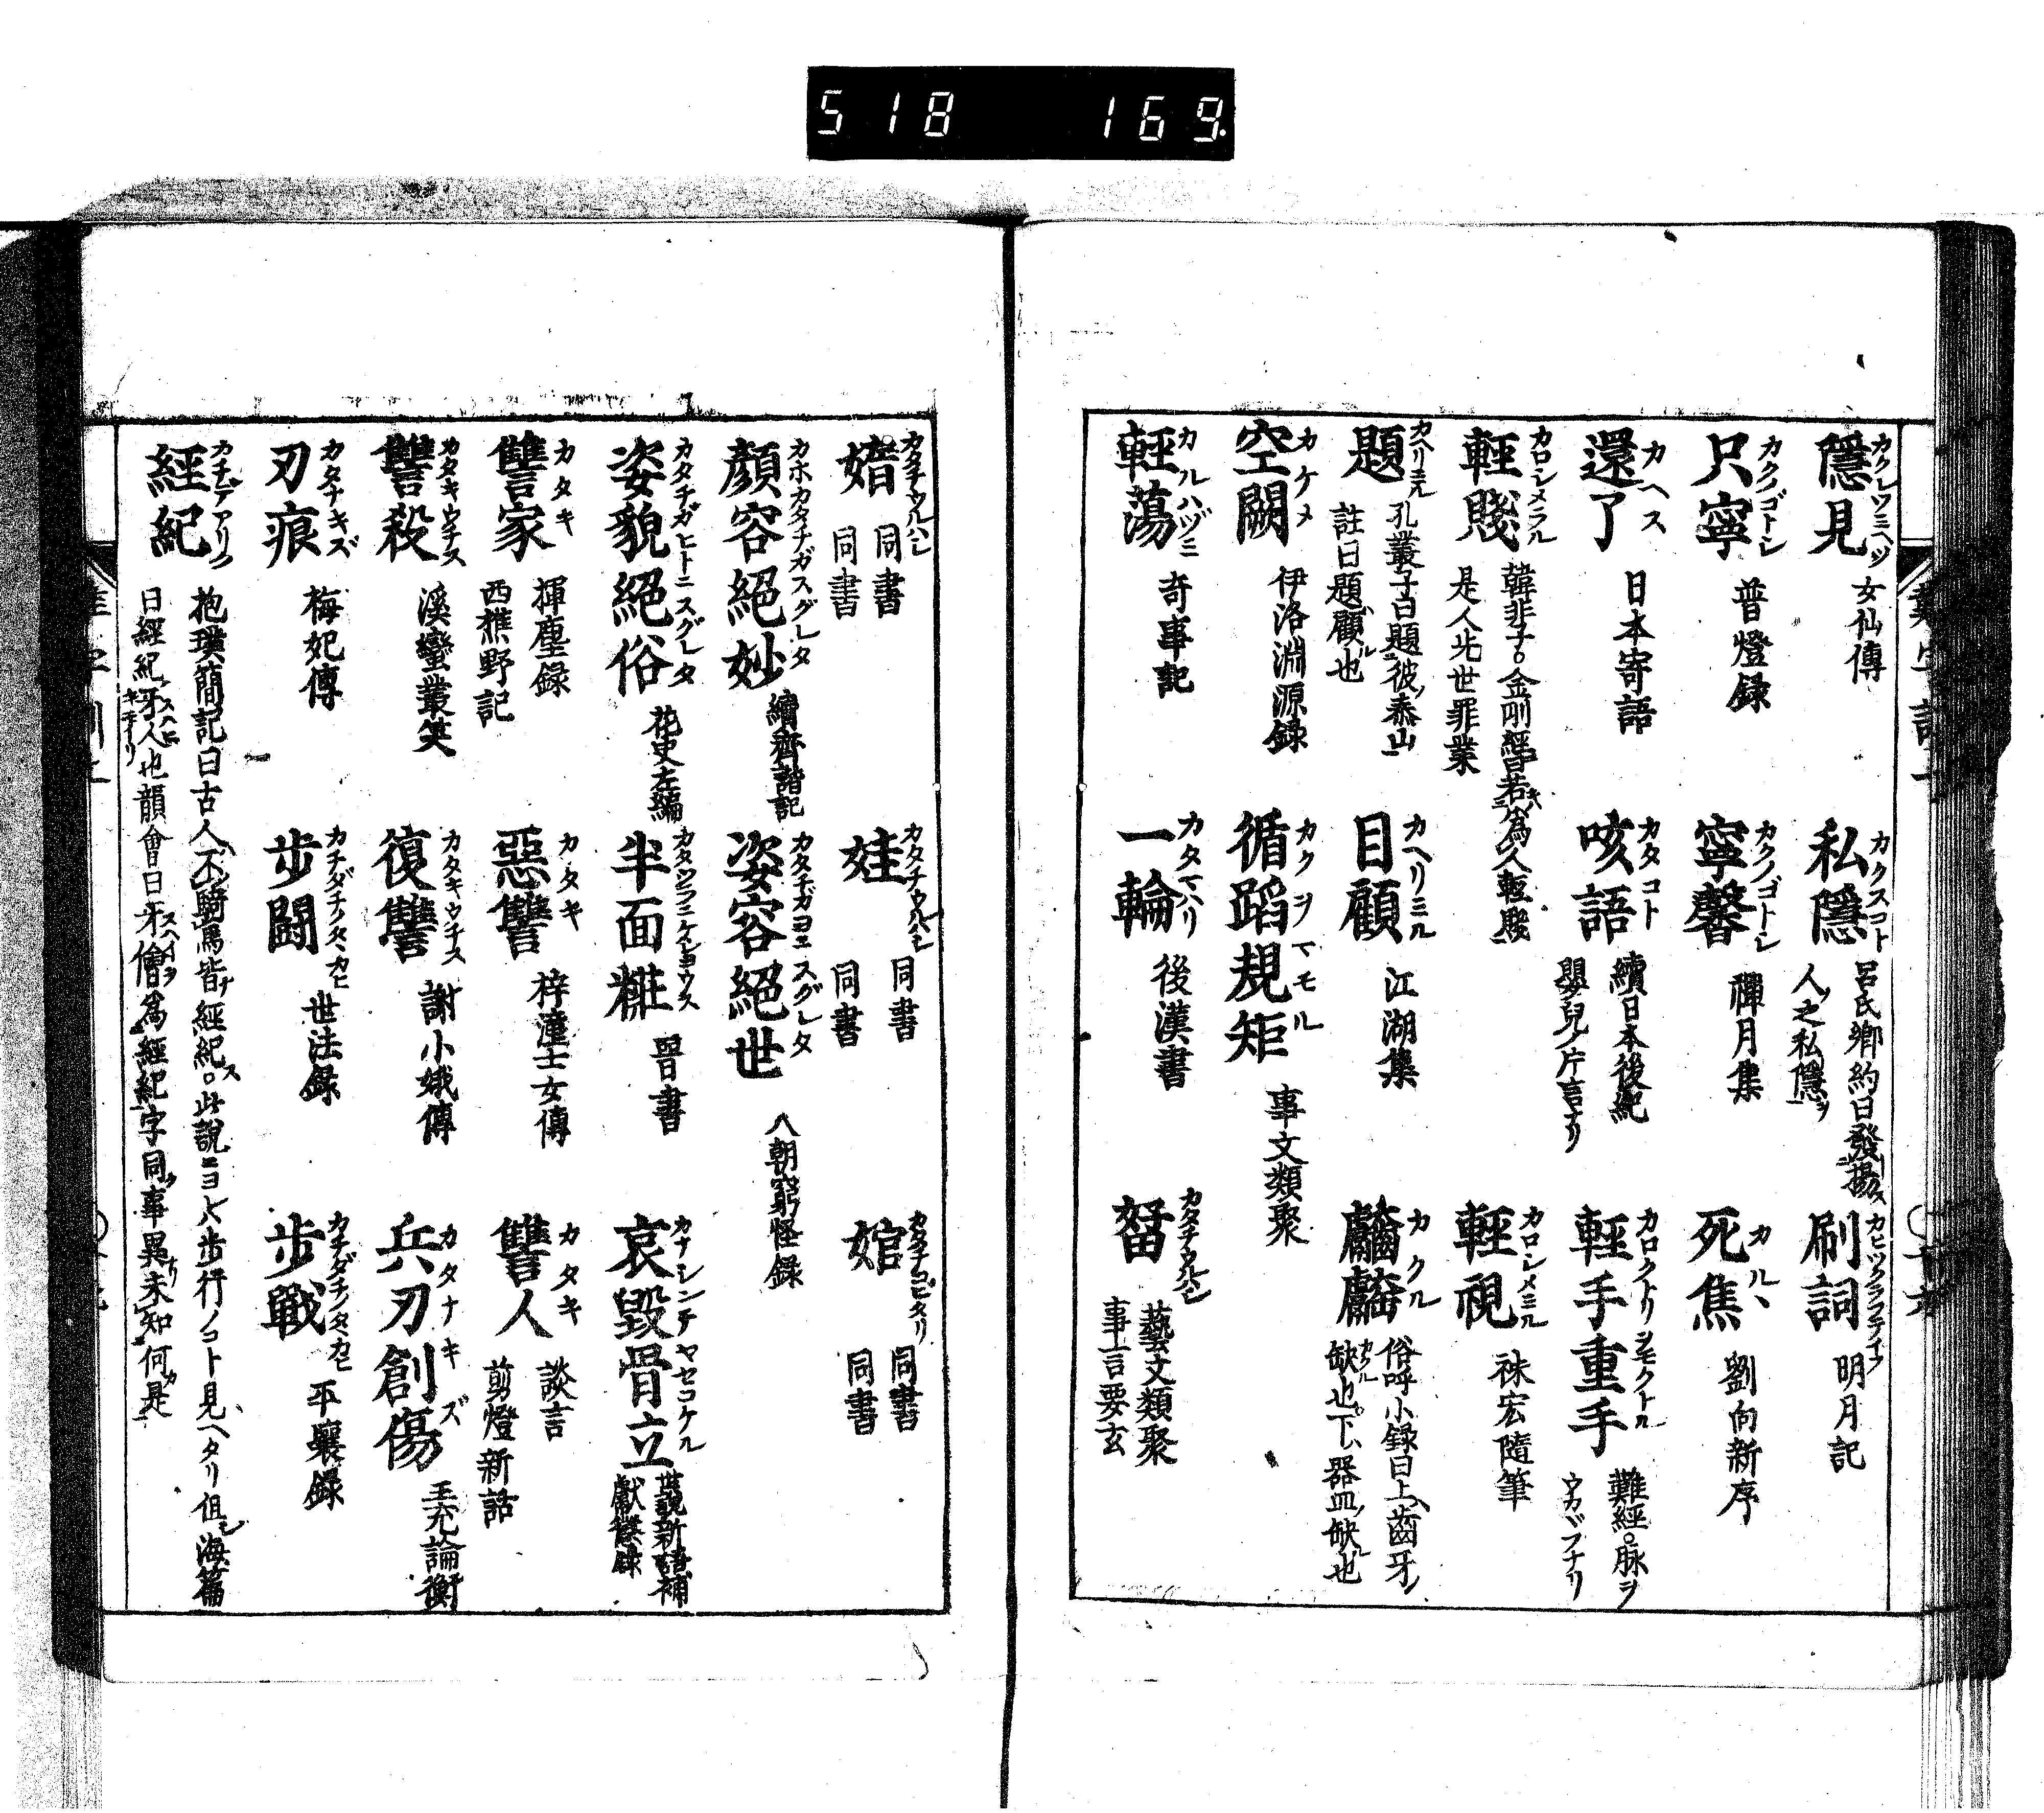 518 169.
隱見 カクレツミヘツ 女仙傳
私隱 カクスコト 呂氏鄉約曰發揚人之私隱ヲ
刷詞 明月記
只寧 カクノゴトシ 普燈録
寧馨 カクノゴトシ 禪月集
死焦 カルヽ 劉向新序
還了 カヘス 日本寄語
咳語 カタコト 續日本後紀 嬰兒ノ片言ナリ
輕手重手 カロクトリヲモクトル 難經。脉ヲウカヾフナリ
輕賤 カロシメラル 韓非子。金剛經曰若為人輕賤是人先世罪業
輕視 カロシメミル 祩宏隨筆
題 カヘリミル 孔叢子曰題彼泰山註曰題顧也
目顧 カヘリミル 江湖集
カクル 俗呼小録曰上ハ齒牙ノ缺也下ハ器皿ノ缺也
空闕 カケメ 伊洛淵源録
循蹈規矩 カクヲマモル 事文類聚
輕蕩 カルハヅミ 奇事記
一輪 後漢書
カタチウルハシ 藝文類聚 事言要玄
婧 カタチウルハシ 同書 同書
娃 カタチウルハシ 同書 同書
婠 同書 同書
顏容絕妙 カホカタチガスグレタ 續齊諧記
姿容絕世 カタチガヨニスグレタ 八朝窮怪録
姿貌絕俗 カタチガヒトニスグレタ 花史左編
半面粧 晉書
哀毀骨立 カナシンデヤセコケル 世說新語補
讐家 カタキ 揮麈録 西樵野記
惡讐 カタキ 梓潼士女傳
讐人 カタキ 談言 剪燈新話
讐殺 カタキウチス 溪蠻叢笑
復讐 カタキウチス 謝小娥傳
兵刃創傷 カタナキズ 王充論衡
刃痕 カタナキズ 梅妃傳
步鬪 カチダチノタヽカヒ 世法録
步戰 カチダチノタヽカヒ 平壤録
經紀 カチニテアリク 抱璞簡記曰古人不騎馬皆經紀ス。此說ニヨレハ步行ノコト見ヘタリ但シ海篇
曰經紀ハ牙人也韻會曰牙儈為經紀字同事異未知何是